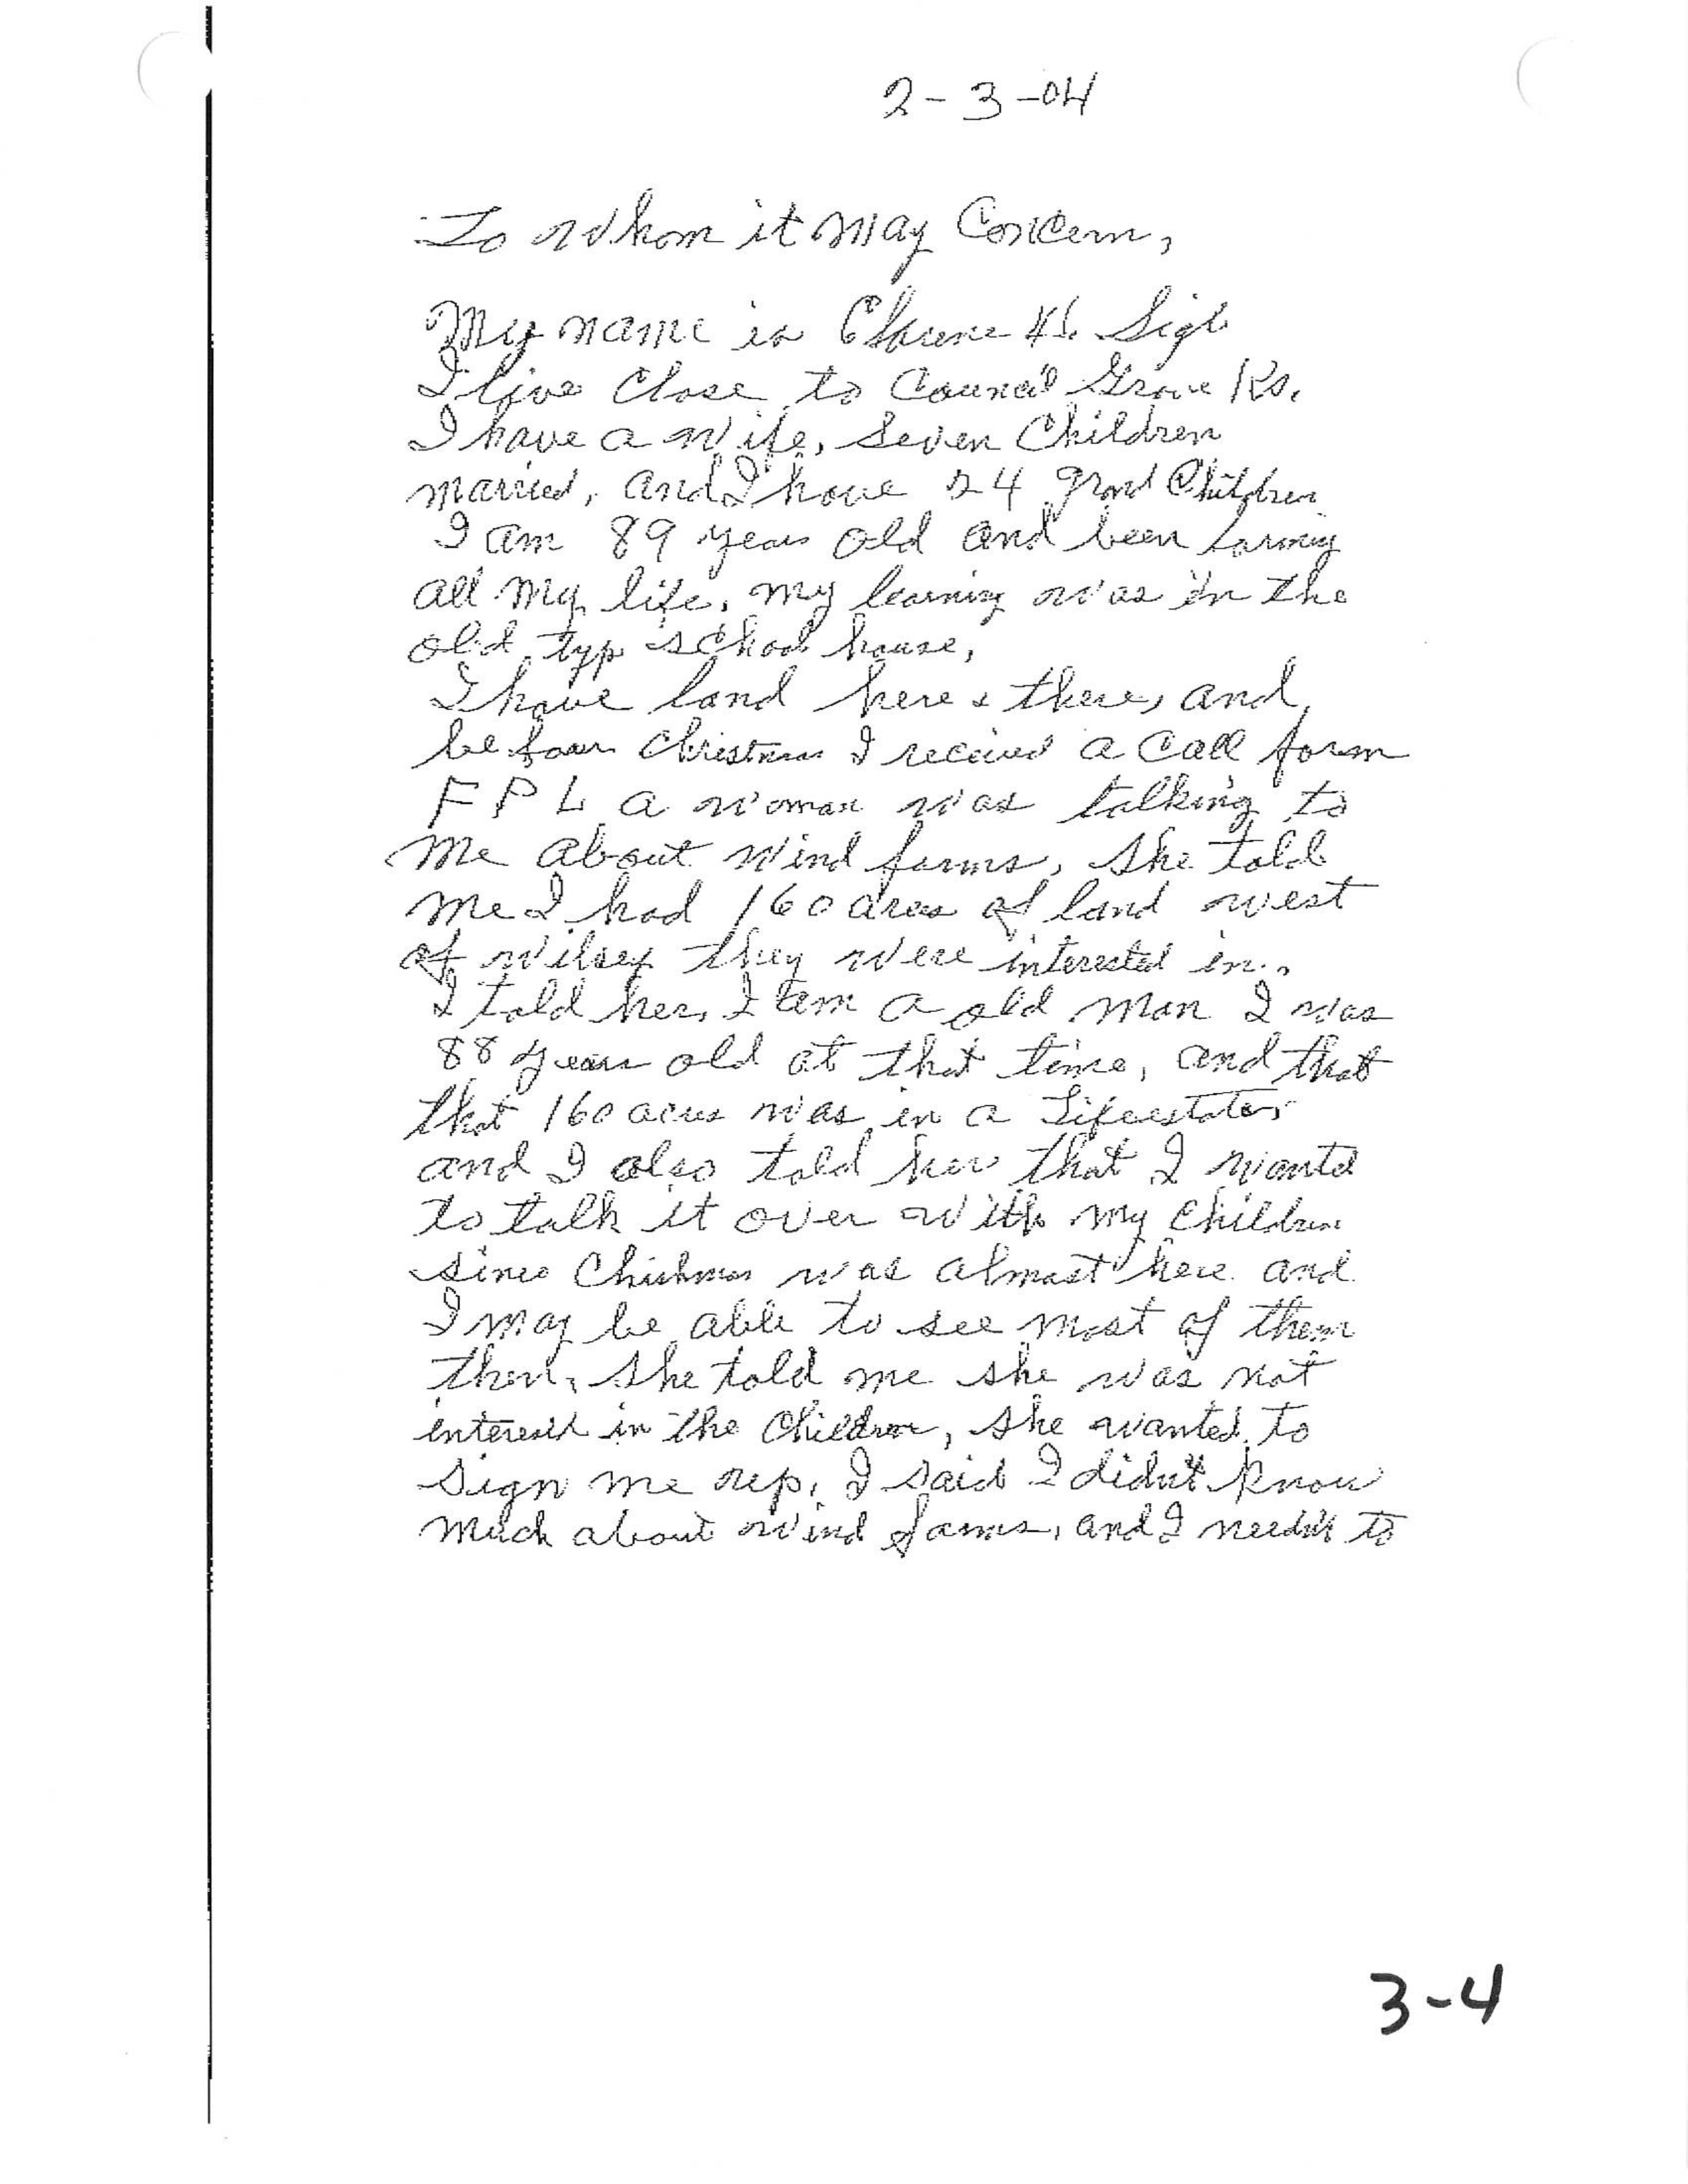 2-3-04
To Whom it May Concern,
My name is Clarence H. Sigle
I live Close to Council Grove Ks.
I have a wife, Seven Children
married, and I have 24 grand Children
I am 89 years old and been farming
all my life, my learning was in the
old typ school house,
I have land here & there, and
before Christmas I received a call form
FPL a woman was talking to
me about wind farms, she told
me I had 160 acres of land west
of Wilsey they were interested in.
I told her, I am a old man I was
88 years old at that time, and that
that 160 acres was in a Life estate,
and I also told her that I wanted
to talk it over with my children
since Christmas was almost here and
I may be able to see most of them
then, she told me she was not
interested in the children, she wanted to
sign me up, I said I didn't know
much about wind farms, and I to
3-4